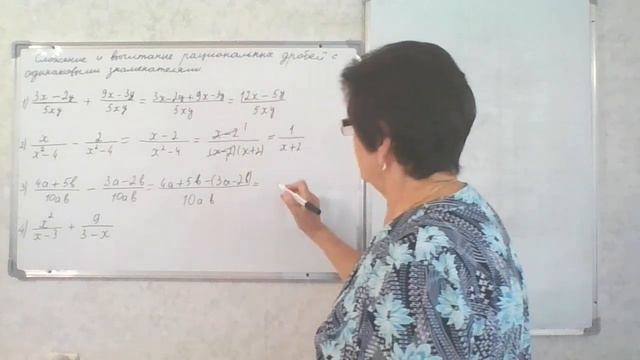 Сложение и вычитание рациональных дробей с
одинаковыми знаменателями.
1) (3x − 2y)/(5xy) + (9x − 3y)/(5xy) = (3x − 2y + 9x − 3y)/(5xy) = (12x − 5y)/(5xy)
2) x/(x² − 4) − 2/(x² − 4) = (x − 2)/(x² − 4) = (x − 2)¹/((x − 2)(x + 2)) = 1/(x + 2)
3) (4a + 5b)/(10ab) − (3a − 2b)/(10ab) = (4a + 5b − (3a − 2b))/(10ab) =
4) x²/(x − 3) + 9/(3 − x)